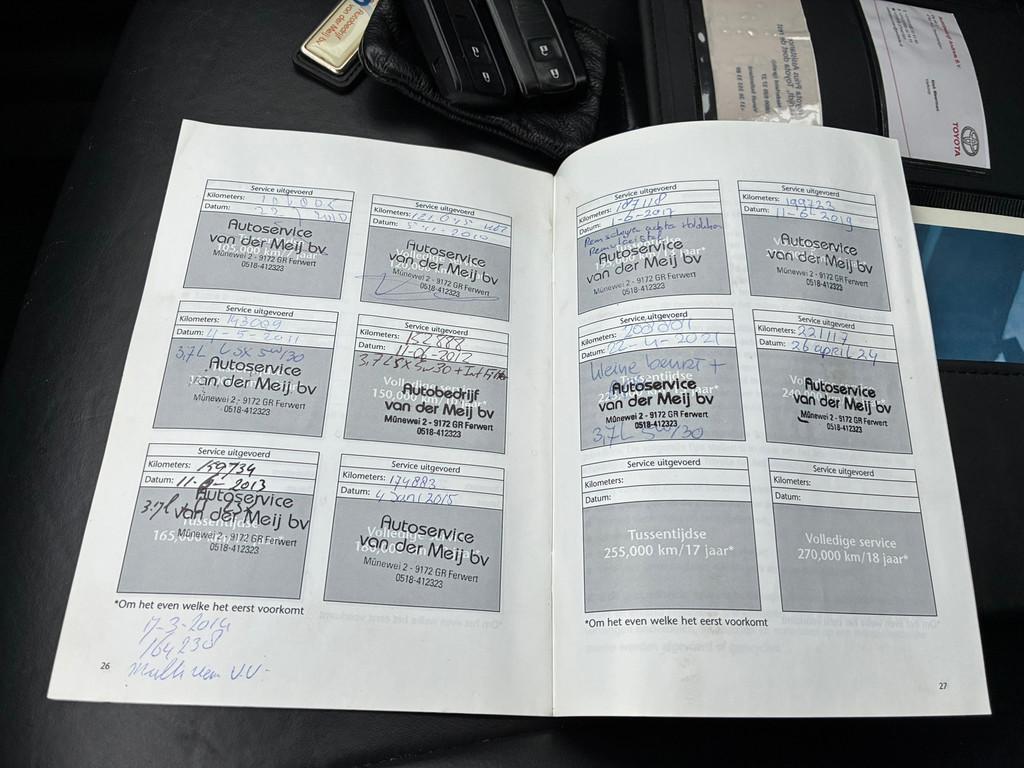 Autobedrijf
van der Meij bv
TOYOTA
Service uitgevoerd
Kilometers:
Datum: 2010
Autoservice
van der Meij bv
105,000 km/7 jaar*
Münewei 2 - 9172 GR Ferwert
0518-412323
Service uitgevoerd
Kilometers: 121.045
Datum: 5-11-2010
Autoservice
van der Meij bv
Münewei 2 - 9172 GR Ferwert
0518-412323
Service uitgevoerd
Kilometers: 143009
Datum: 11-5-2011
3,7L 5W/30
Autoservice
van der Meij bv
Münewei 2 - 9172 GR Ferwert
0518-412323
Service uitgevoerd
Kilometers: 152888
Datum: 11-06-2012
3,7L 5W30 +
Volledige service
150,000 km/
Autobedrijf
van der Meij bv
Münewei 2 - 9172 GR Ferwert
0518-412323
Service uitgevoerd
Kilometers: 159734
Datum: 11-6-2013
3.7l
Autoservice
van der Meij bv
Tussentijdse
165,000 km/
Münewei 2 - 9172 GR Ferwert
0518-412323
Service uitgevoerd
Kilometers: 174883
Datum: 4 Juni 2015
Autoservice
van der Meij bv
Münewei 2 - 9172 GR Ferwert
0518-412323
*Om het even welke het eerst voorkomt
17-3-2014
164238
26
Service uitgevoerd
Kilometers: 187118
Datum: 1-6-2017
Autoservice
van der Meij bv
Münewei 2 - 9172 GR Ferwert
0518-412323
Service uitgevoerd
Kilometers: 199723
Datum: 11-6-2019
Autoservice
van der Meij bv
Münewei 2 - 9172 GR Ferwert
0518-412323
Service uitgevoerd
Kilometers:
Datum: 22-4-2021
kleine beurt +
Tussentijdse
Autoservice
van der Meij bv
Münewei 2 - 9172 GR Ferwert
0518-412323
3,7L 5W/30
Service uitgevoerd
Kilometers:
Datum: 26 april 24
Autoservice
van der Meij bv
Münewei 2 - 9172 GR Ferwert
0518-412323
Service uitgevoerd
Kilometers:
Datum:
Tussentijdse
255,000 km/17 jaar*
Service uitgevoerd
Kilometers:
Datum:
Volledige service
270,000 km/18 jaar*
*Om het even welke het eerst voorkomt
27